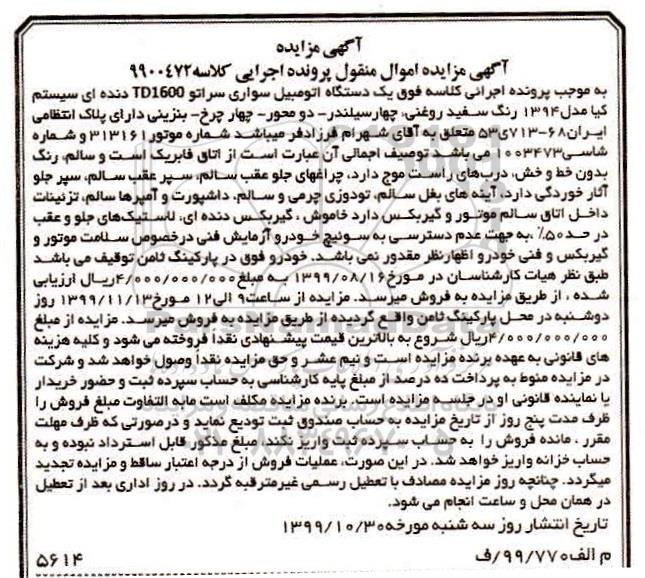 آگهی مزایده
آگهی مزایده اموال منقول پرونده اجرایی کلاسه۹۹۰۰۴۷۲
به موجب پرونده اجرائی کلاسه فوق یک دستگاه اتومبیل سواری سراتو TD1600 دنده ای سیستم
کیا مدل۱۳۹۴ رنگ سفید روغنی، چهارسیلندر- دو محور- چهار چرخ- بنزینی دارای پلاک انتظامی
ایران۶۸-۷۱۳ی۵۳ متعلق به آقای شهرام فرزادفر میباشد شماره موتور۳۱۳۱۶۱ و شماره
شاسی۱۰۰۳۴۷۳ می باشد توصیف اجمالی آن عبارت است از اتاق فابریک است و سالم، رنگ
بدون خط و خش، درب‌های راست موج دارد، چراغهای جلو عقب سالم، سپر عقب سالم، سپر جلو
آثار خوردگی دارد، آینه های بغل سالم، تودوزی چرمی و سالم، داشپورت و آمپرها سالم، تزئینات
داخل اتاق سالم موتور و گیربکس دارد خاموش ، گیربکس دنده ای، لاستیک‌های جلو و عقب
در حد۵۰٪ ،به جهت عدم دسترسی به سوئیچ خودرو آزمایش فنی درخصوص سلامت موتور و
گیربکس و فنی خودرو اظهارنظر مقدور نمی باشد. خودرو فوق در پارکینگ ثامن توقیف می باشد
طبق نظر هیات کارشناسان در مورخ۱۳۹۹/۰۸/۱۶ به مبلغ۴/۰۰۰/۰۰۰/۰۰۰ریال ارزیابی
شده ، از طریق مزایده به فروش میرسد. مزایده از ساعت۹ الی۱۲ مورخ۱۳۹۹/۱۱/۱۳ روز
دوشنبه در محل پارکینگ ثامن واقع گردیده از طریق مزایده به فروش میرسد. مزایده از مبلغ
۴/۰۰۰/۰۰۰/۰۰۰ریال شروع به بالاترین قیمت پیشنهادی نقدا فروخته می شود و کلیه هزینه
های قانونی به عهده برنده مزایده است و نیم عشر و حق مزایده نقداً وصول خواهد شد و شرکت
در مزایده منوط به پرداخت ده درصد از مبلغ پایه کارشناسی به حساب سپرده ثبت و حضور خریدار
یا نماینده قانونی او در جلسه مزایده است. برنده مزایده مکلف است مابه التفاوت مبلغ فروش را
ظرف مدت پنج روز از تاریخ مزایده به حساب صندوق ثبت تودیع نماید و درصورتی که ظرف مهلت
مقرر ، مانده فروش را به حساب سپرده ثبت واریز نکند، مبلغ مذکور قابل استرداد نبوده و به
حساب خزانه واریز خواهد شد. در این صورت، عملیات فروش از درجه اعتبار ساقط و مزایده تجدید
میگردد. چنانچه روز مزایده مصادف با تعطیل رسمی غیرمترقبه گردد. در روز اداری بعد از تعطیل
در همان محل و ساعت انجام می شود.
تاریخ انتشار روز سه شنبه مورخه۱۳۹۹/۱۰/۳۰
م الف۹۹/۷۷۰/ف ۵۶۱۴